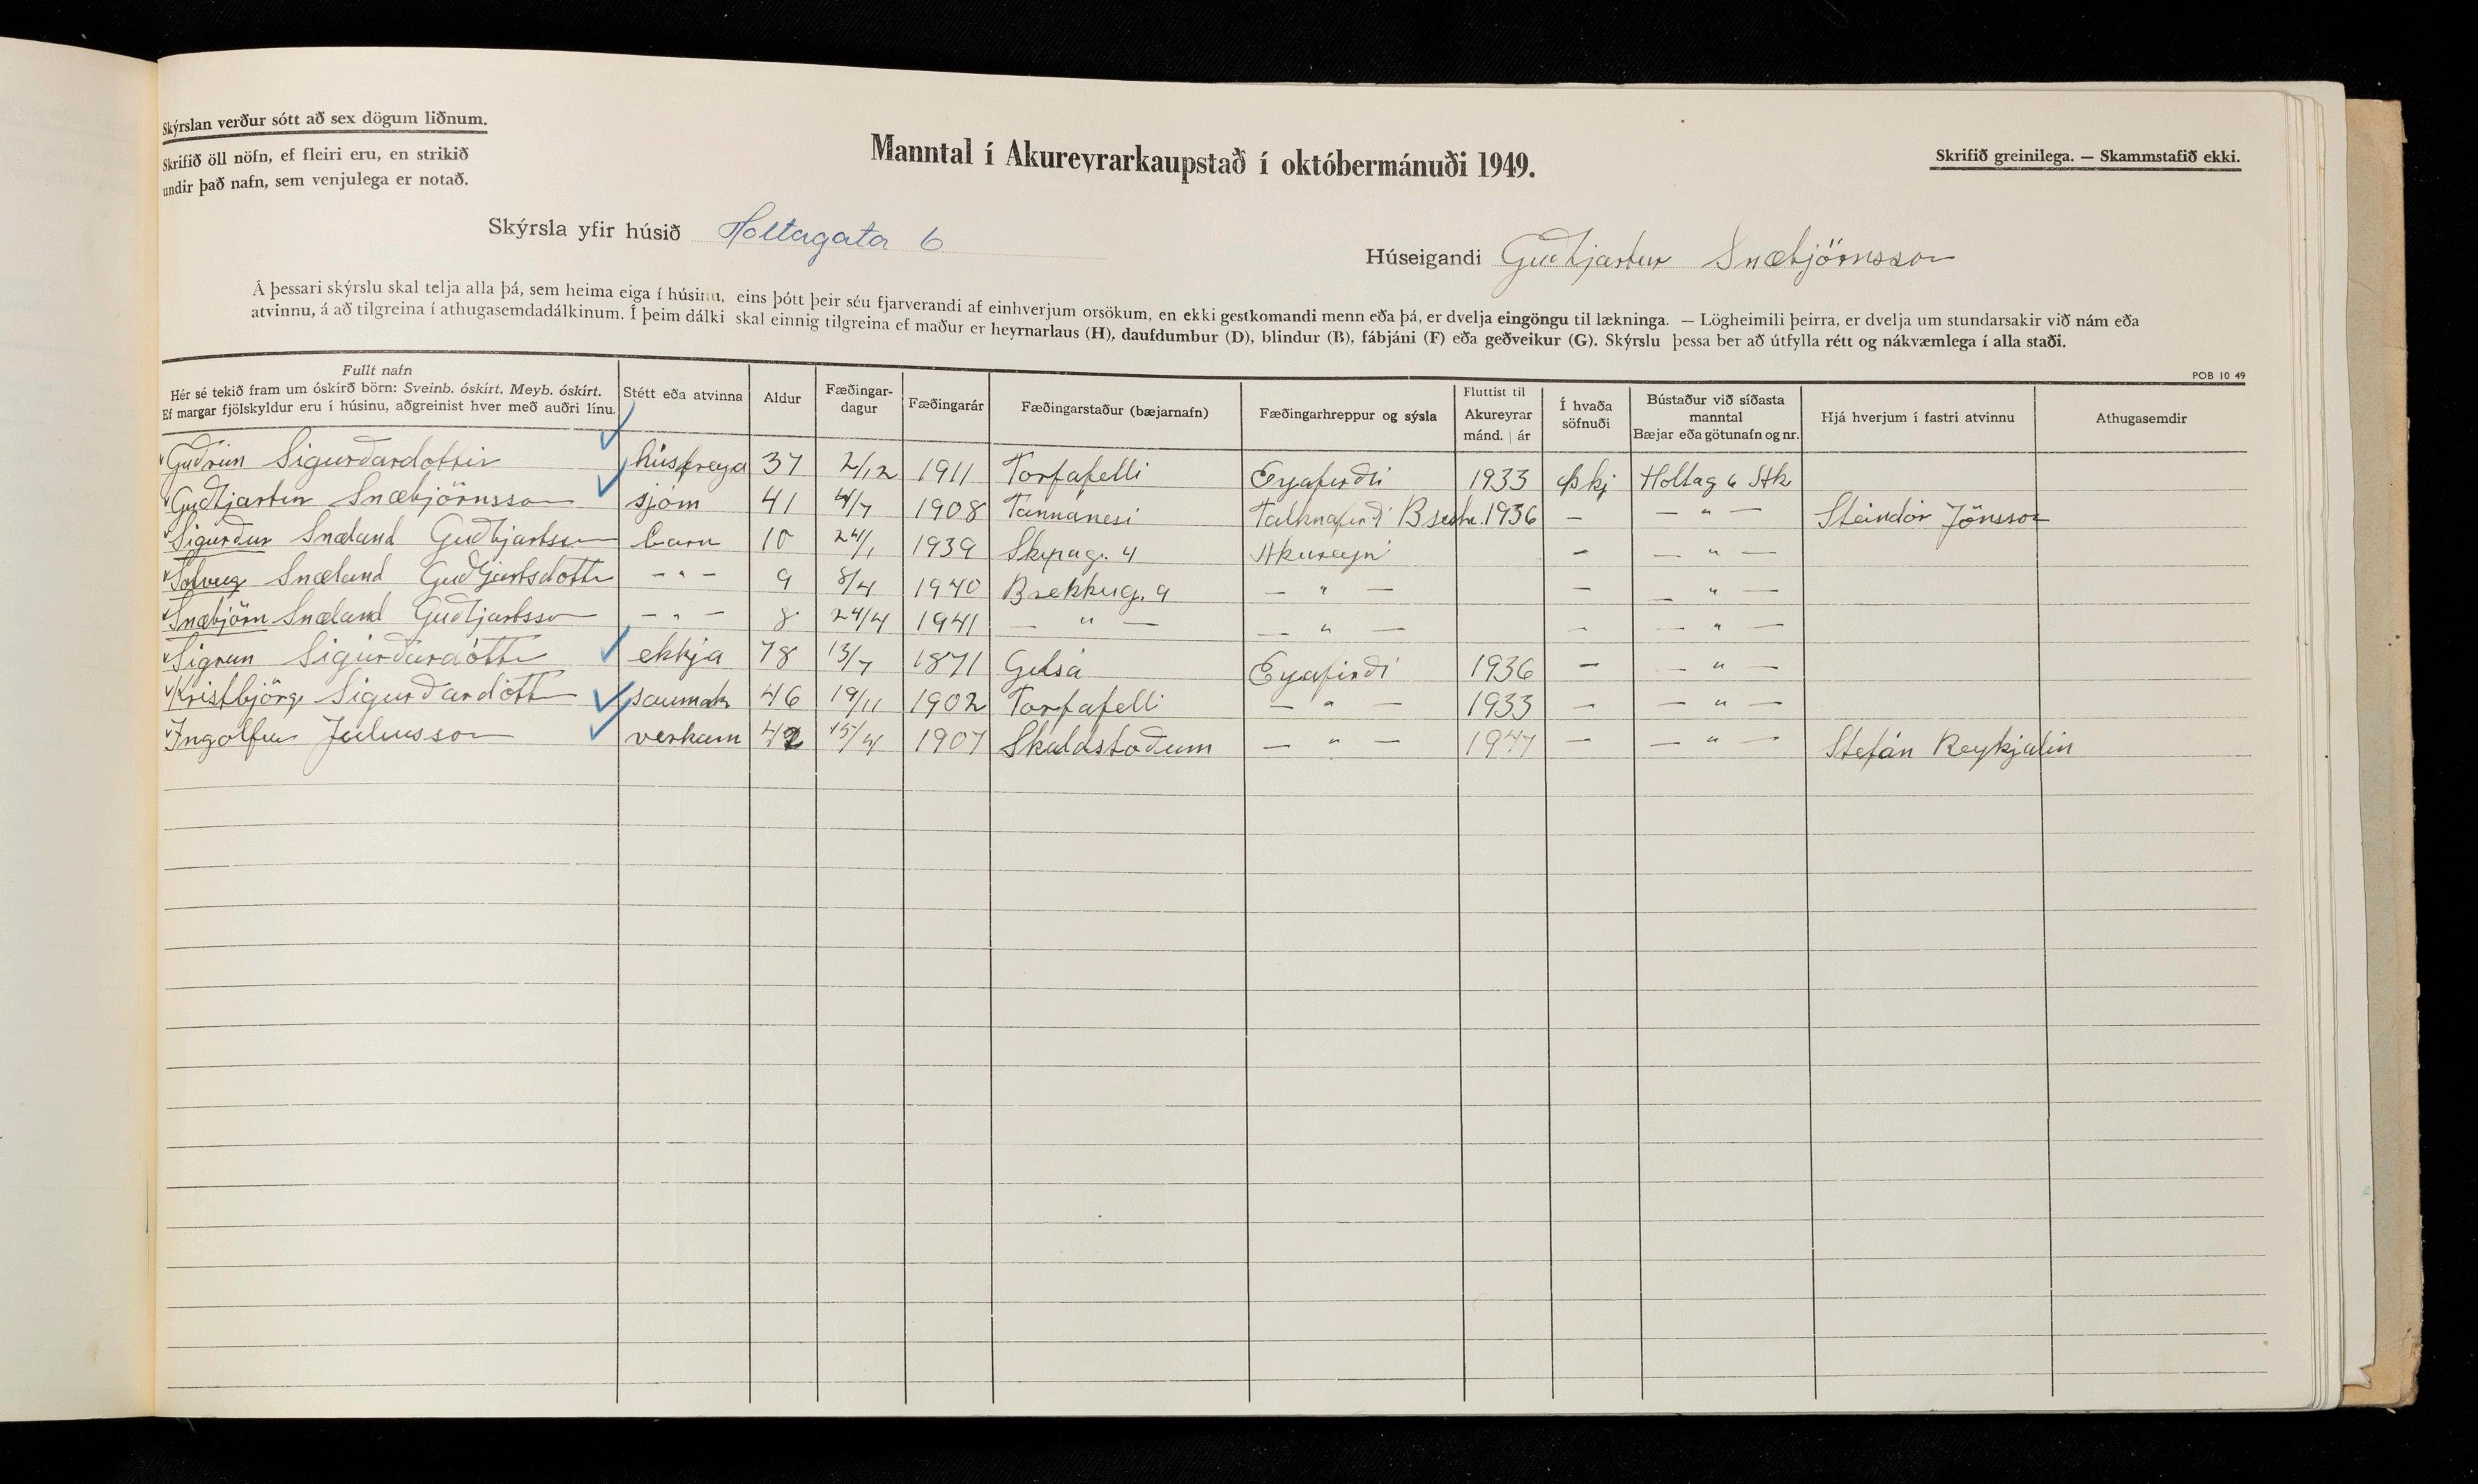 Skýrslan verður sótt að sex dögum liðnum.
Skrifið öll nöfn, ef fleiri eru, en strikið
undir það nafn, sem venjulega er notað.
Manntal í Akureyrarkaupstað í októbermánuði 1949.
Skrifið greinilega. — Skammstafið ekki.
Skýrsla yfir húsið Holtagata 6
Húseigandi Guðbjartur Snæbjörnsson
Á þessari skýrslu skal telja alla þá, sem heima eiga í húsinu, eins þótt þeir séu fjarverandi af einhverjum orsökum, en ekki gestkomandi menn eða þá, er dvelja eingöngu til lækninga. — Lögheimili þeirra, er dvelja um stundarsakir við nám eða
atvinnu, á að tilgreina í athugasemdadálkinum. Í þeim dálki skal einnig tilgreina ef maður er heyrnarlaus (H), daufdumbur (D), blindur (B), fábjáni (F) eða geðveikur (G). Skýrslu þessa ber að útfylla rétt og nákvæmlega í alla staði.
POB 10 49
Fullt nafn
Hér sé tekið fram um óskírð börn: Sveinb. óskírt. Meyb. óskírt.
Ef margar fjölskyldur eru í húsinu, aðgreinist hver með auðri línu.
Stétt eða atvinna
Aldur
Fæðingar-
dagur
Fæðingarár
Fæðingarstaður (bæjarnafn)
Fæðingarhreppur og sýsla
Fluttist til
Akureyrar
mánd. | ár
Í hvaða
söfnuði
Bústaður við síðasta
manntal
Bæjar eða götunafn og nr.
Hjá hverjum í fastri atvinnu
Athugasemdir
Guðrún Sigurðardottir húsfreya 37 2/12 1911 Torfafelli Eyafirði 1933 þkj Holtag 6 Ak
Guðbjartur Snæbjörnsson sjóm 41 4/7 1908 Tannanesi Talknafirði 1936 — — " — Steindór Jónsson
Sigurður Snæland Guðbjartsson barn 10 24/1 1939 Skipag. 4 Akureyri — — " —
Solveig Snæland Guðbjartsdottir — " — 9 8/4 1940 Brekkug. 9 — " — — — " —
Snæbjörn Snæland Guðbjartsson — " — 8 24/4 1941 — " — — " — — — " —
Sigrun Sigurðardóttir ekkja 78 13/7 1871 Gilsá Eyafirði 1936 — — " —
Kristbjörg Sigurðardótti saumak 46 19/11 1902 Torfafelli — " — 1933 — — " —
Ingolfur Juliusson verkam 42 15/4 1907 Skaldstoðum — " — 1947 — — " — Stefán Reykjalin